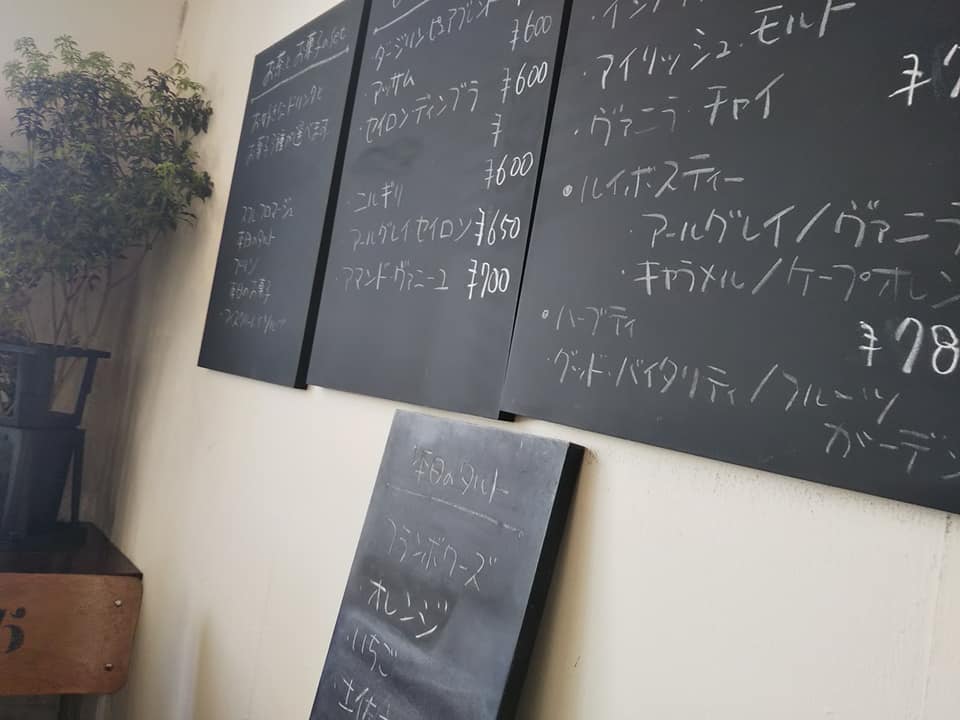 お茶とお菓子のset
お好きなドリンクと
お菓子3種が選べます
本日のタルト
プリン
本日のお菓子
ダージリンピュアブレンド
¥600
・アッサム
¥600
・セイロンディンブラ
¥
¥600
・ニルギリ
・アールグレイセイロン ¥650
・アマンドヴァニーユ ¥700
・アイリッシュ・モルト
・ヴァニラ チャイ
・ルイボスティー
アールグレイ/ヴァニラ
・キャラメル/ケープオレン
・ハーブティ
¥78
・グッド・バイタリティ/フルーツ
ガーデン
本日のタルト
フランボワーズ
・オレンジ
・いちご
・土佐